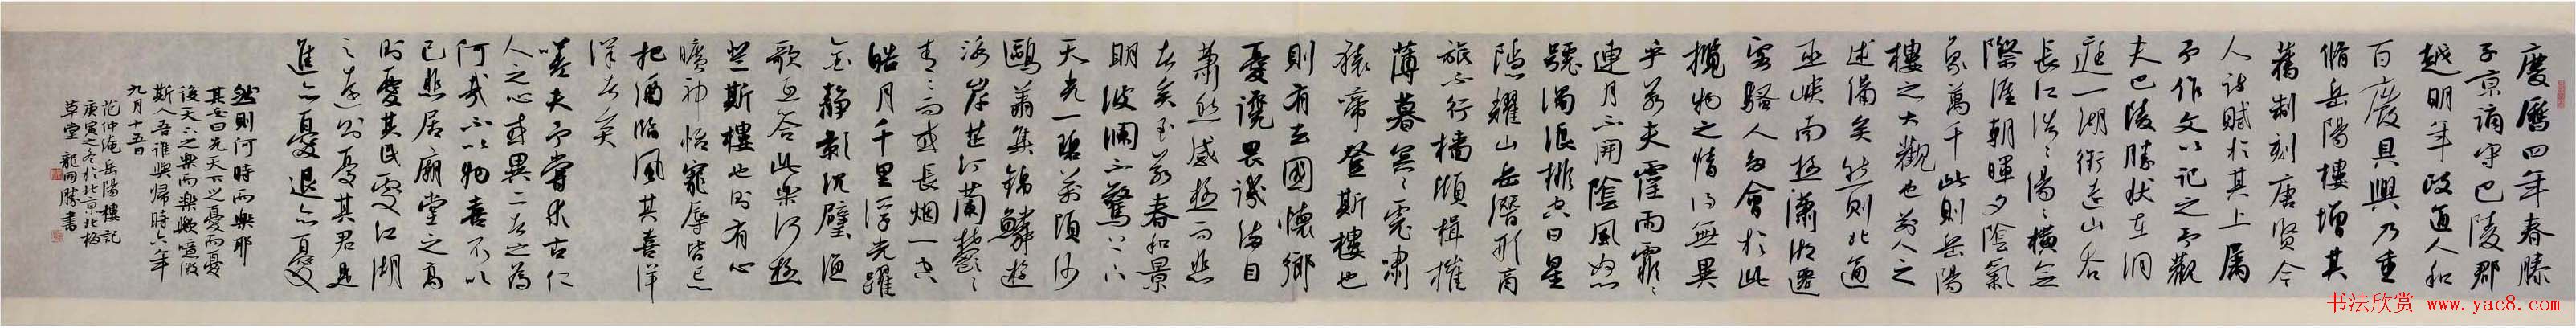 慶曆四年春滕
子京謫守巴陵郡
越明年政通人和
百廢具興乃重
脩岳陽樓增其
舊制刻唐贤今
人詩賦於其上属
予作文以记之予觀
夫巴陵勝狀在洞
庭一湖銜遠山吞
长江浩々湯々横無
際涯朝暉夕陰氣
象萬千此則岳陽
樓之大觀也前人之
述備矣然則北通
巫峡南極瀟湘遷
客騷人多會於此
攬物之情得無異
乎若夫霪雨霏々
連月不開陰風怒
號濁浪排空日星
隐耀山岳潛形商
旅不行檣傾楫摧
薄暮冥々虎嘯
猿啼登斯樓也
則有去國懷鄉
憂讒畏譏滿目
萧然感極而悲
者矣至若春和景
明波澜不驚上下
天光一碧萬頃沙
鷗翔集錦鱗游
泳岸芷汀蘭鬱々
青々而或長烟一空
皓月千里浮光躍
金静影沉璧漁
歌互答此樂何極
登斯樓也則有心
曠神怡寵辱皆忘
把酒临風其喜洋
洋者矣
嗟夫予嘗求古仁
人之心或異二者之為
何哉不以物喜不以
己悲居廟堂之高
則憂其民處江湖
之遠則憂其君是
進亦憂退亦憂
然則何時而樂耶
其必曰先天下之憂而憂
後天下之樂而樂歟噫微
斯人吾誰與歸時六年
九月十五日
范仲淹岳陽樓記
庚寅之冬於北京北極
草堂 龍開勝書
书法欣赏 www.yac8.com